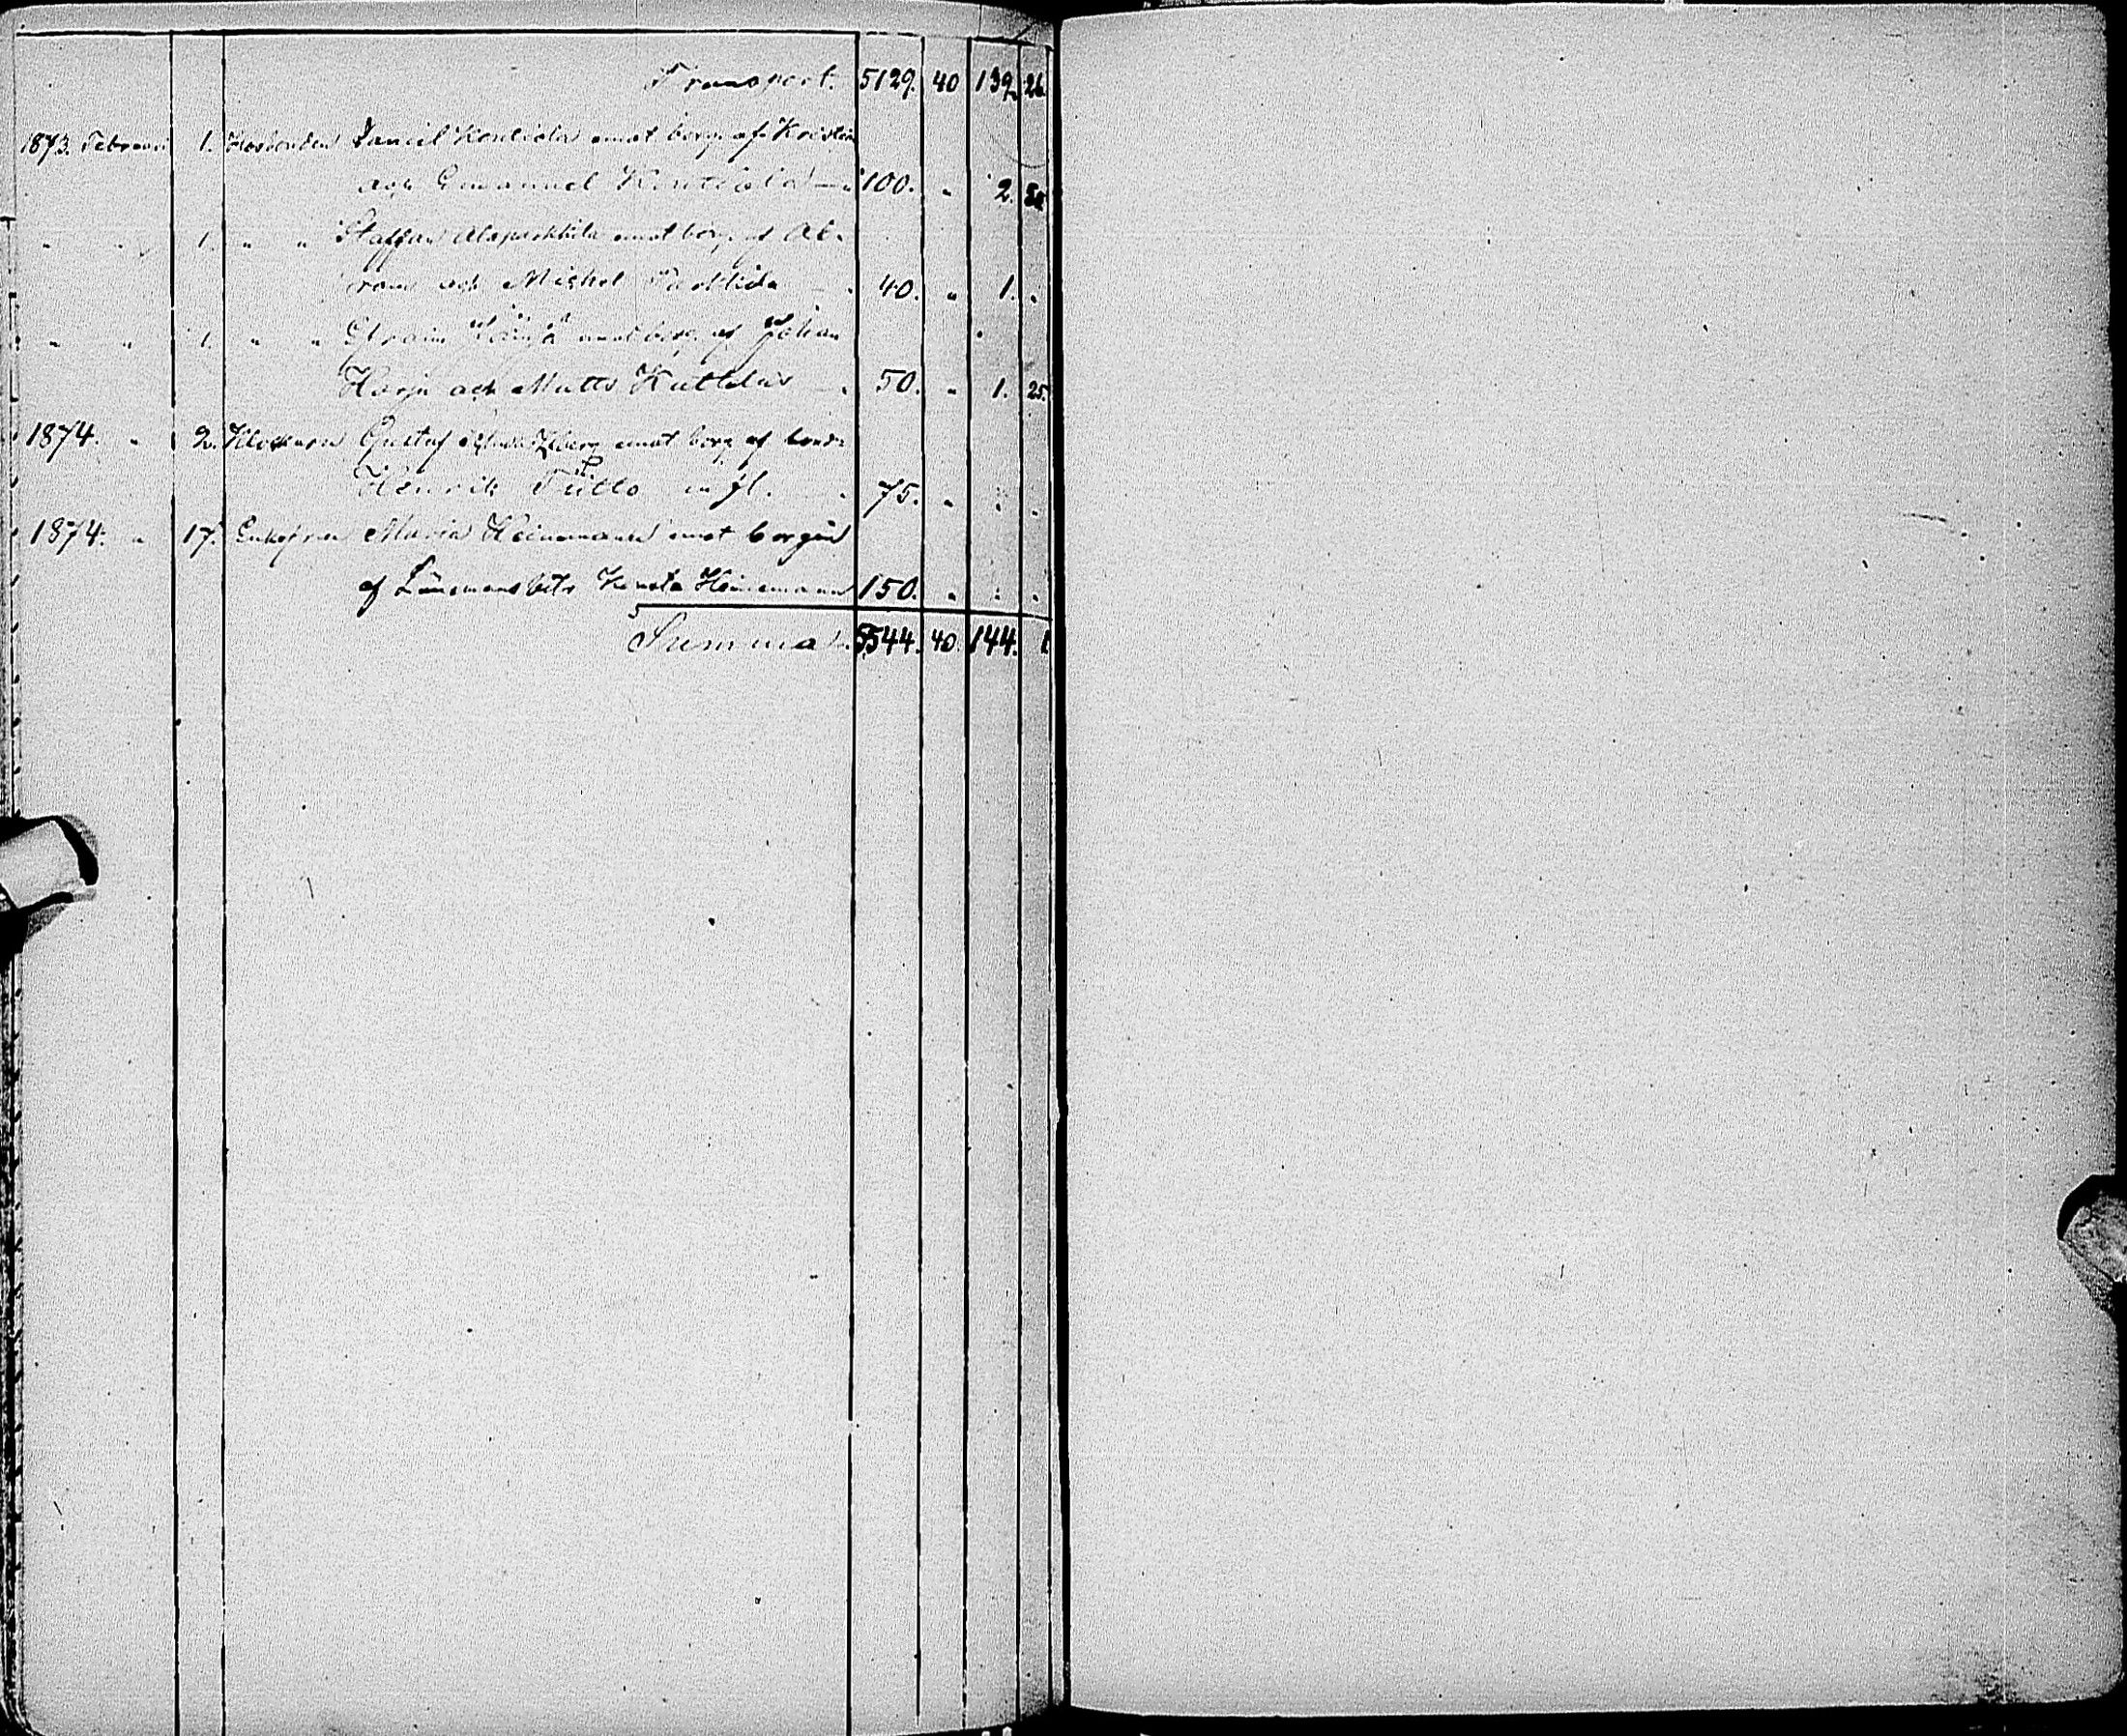 Transport. 5129. 40 139. 26.
1873. Februari 1. Husbonden Daniel Kontiola emot borg. af Kristian
och Emanuel Kontiola — " 100. " 2. 50.
" " 1. " " Staffan Alaparkkila emot borg. af Ab-
ram och Michel Parkkila — " 40. " 1. "
" " 1. " " Efraim emot borg. af Johan
Harju och Matts — " 50. " 1. 25.
1874. " 2. Klockaren Gustaf emot borg. af bond.
Henrik Tiitto m fl. " 75. " " "
1874. " 17. Enkefrun Maria Heinemann emot borgen
af Länsmans Heinemann 150. " " "
Summa 5544. 40. 144. 1.